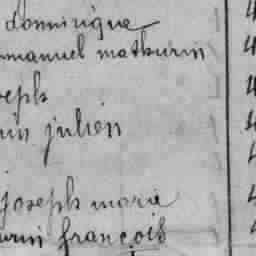 dominique
mmanuel mathurin
seph
rin julien
joseph marie
urin françois